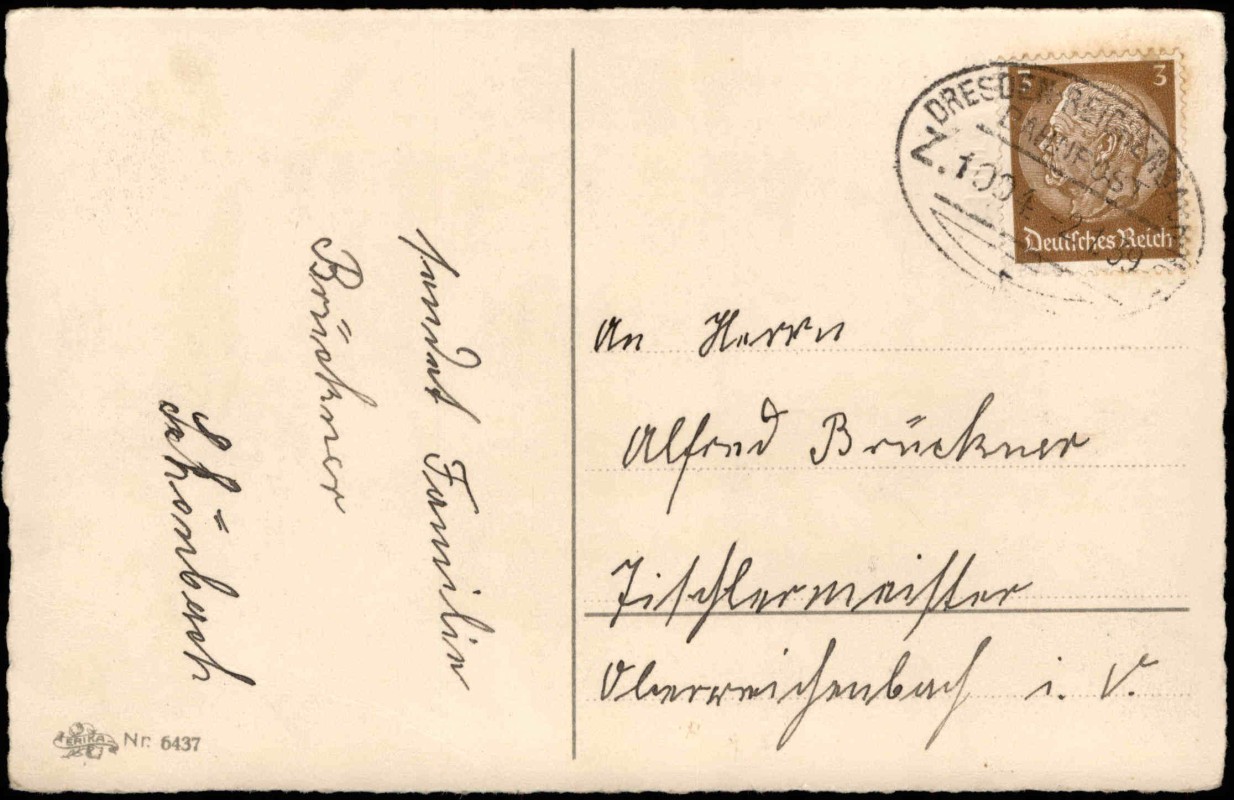 sendet Familie
Brückner
Schönbach
ERIKA Nr. 6437
3
Deutsches Reich
DRESDEN-REICHENBACH
BAHNPOST
Z. 1001
An Herrn
Alfred Brückner
Tischlermeister
Oberreichenbach i. V.